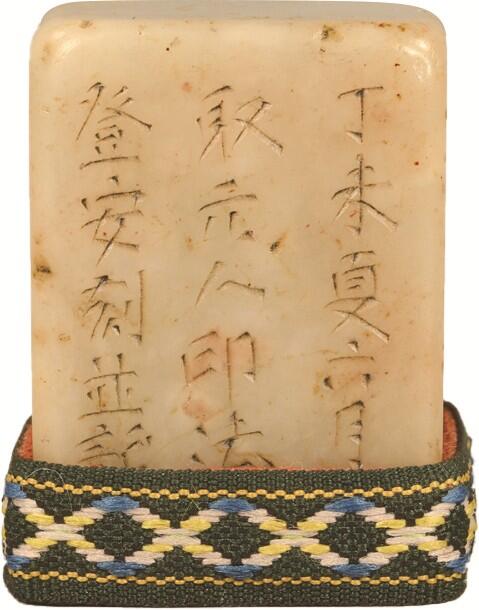 丁未夏六月
取元人印法
登安刻並記